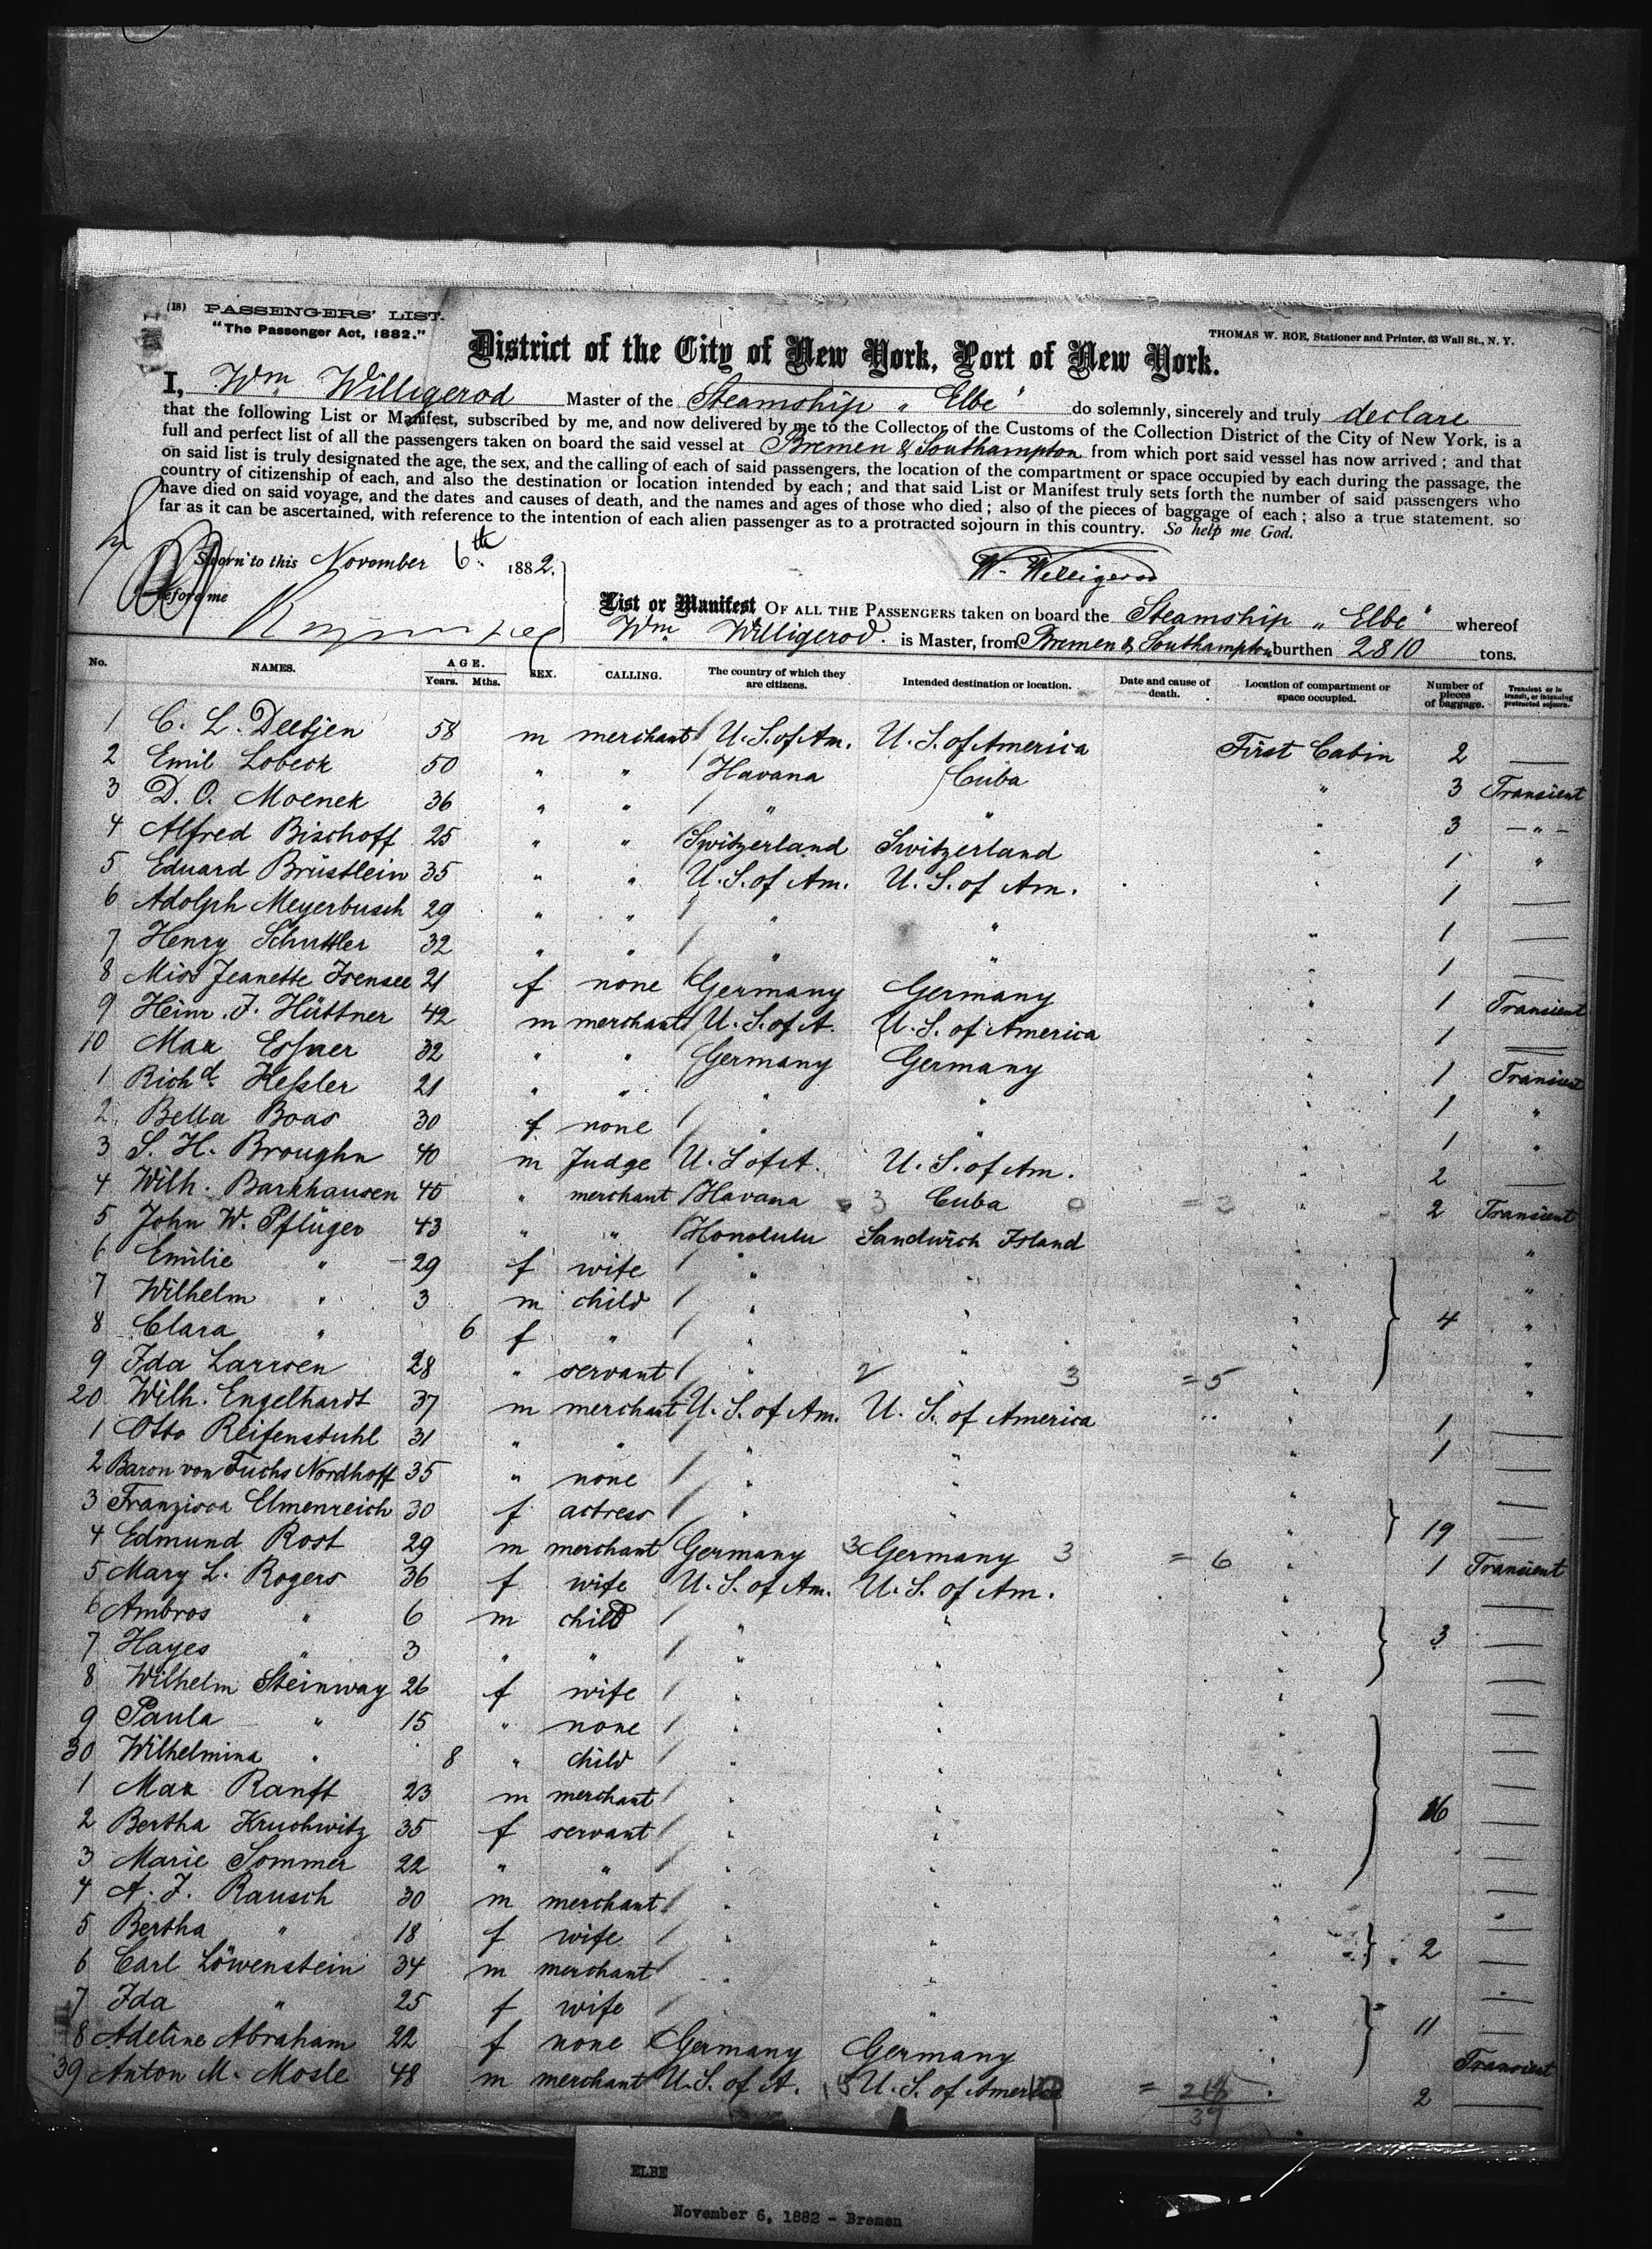 (18) PASSENGERS' LIST.
"The Passenger Act, 1882."
THOMAS W. ROE, Stationer and Printer, 63 Wall St., N. Y.
District of the City of New York, Port of New York.
I, Wm Willigerod Master of the Steamship „ Elbe" do solemnly, sincerely and truly declare
that the following List or Manifest, subscribed by me, and now delivered by me to the Collector of the Customs of the Collection District of the City of New York, is a
full and perfect list of all the passengers taken on board the said vessel at Bremen & Southampton from which port said vessel has now arrived; and that
on said list is truly designated the age, the sex, and the calling of each of said passengers, the location of the compartment or space occupied by each during the passage, the
country of citizenship of each, and also the destination or location intended by each; and that said List or Manifest truly sets forth the number of said passengers who
have died on said voyage, and the dates and causes of death, and the names and ages of those who died; also of the pieces of baggage of each; also a true statement, so
far as it can be ascertained, with reference to the intention of each alien passenger as to a protracted sojourn in this country. So help me God.
Sworn to this November 6th 1882.
W. Willigerod
before me
List or Manifest OF ALL THE PASSENGERS taken on board the Steamship „ Elbe" whereof
Wm Willigerod. is Master, from Bremen & Southampton burthen 2810 tons.
No. NAMES. AGE. Years. Mths. SEX. CALLING. The country of which they are citizens. Intended destination or location. Date and cause of death. Location of compartment or space occupied. Number of pieces of baggage. Transient or in transit, or intending protracted sojourn.
1 C. L. Deetjen 58 m merchant U. S. of Am. U. S. of America First Cabin 2 —
2 Emil Lobeck 50 " " Havana Cuba " 3 Transient
3 D. O. Moenck 36 " " " " " 3 — " —
4 Alfred Bischoff 25 " " Switzerland Switzerland " 1 "
5 Eduard Brüstlein 35 " " U. S. of Am. U. S. of Am. " 1 —
6 Adolph Meyerbusch 29 " " " " " 1 —
7 Henry Schuttler 32 " " " " " 1 —
8 Miss Jeanette Isensee 21 f none Germany Germany " 1 Transient
9 Heinr. F. Hüttner 42 m merchant U. S. of A. U. S. of America " 1 —
10 Max Essner 32 " " Germany Germany " 1 Transient
1 Richd. Kessler 21 " " " " " 1 "
2 Bella Boas 30 f none " " " 1 "
3 S. H. Broughn 40 m Judge U. S of A. U. S. of Am. " 2 —
4 Wilh. Barkhausen 40 " merchant Havana 3 Cuba " 2 Transient
5 John W. Pflüger 43 " " Honolulu Sandwich Island " "
6 Emilie " 29 f wife " " " "
7 Wilhelm " 3 m child " " " 4 "
8 Clara " 6 f " " " " "
9 Ida Larrsen 28 " servant " 2 " 3 = 5 " "
20 Wilh. Engelhardt 37 m merchant U. S. of Am. U. S. of America " 1 —
1 Otto Reifenstuhl 31 " " " " " 1 —
2 Baron von Fuchs Nordhoff 35 " none " " " —
3 Franzisca Elmenreich 30 f actress " " " 19 —
4 Edmund Rost 29 m merchant Germany 3 Germany 3 = 6 " 1 Transient
5 Mary L. Rogers 36 f wife U. S. of Am. U. S. of Am. " —
6 Ambros " 6 m child " " " 3 —
7 Hayes " 3 " " " " " —
8 Wilhelm Steinway 26 f wife " " " —
9 Paula " 15 " none " " " —
30 Wilhelmina " 8 " child " " " —
1 Max Ranft 23 m merchant " " " 16 —
2 Bertha Kruchwitz 35 f servant " " " —
3 Marie Sommer 22 " " " " " —
4 A. J. Rausch 30 m merchant " " " —
5 Bertha " 18 f wife " " " 2 —
6 Carl Löwenstein 34 m merchant " " " —
7 Ida " 25 f wife " " " 11 —
8 Adeline Abraham 22 f none Germany Germany " Transient
39 Anton M. Mosle 48 m merchant U. S. of A. U. S. of America 2 —
39
ELBE
November 6, 1882 - Bremen